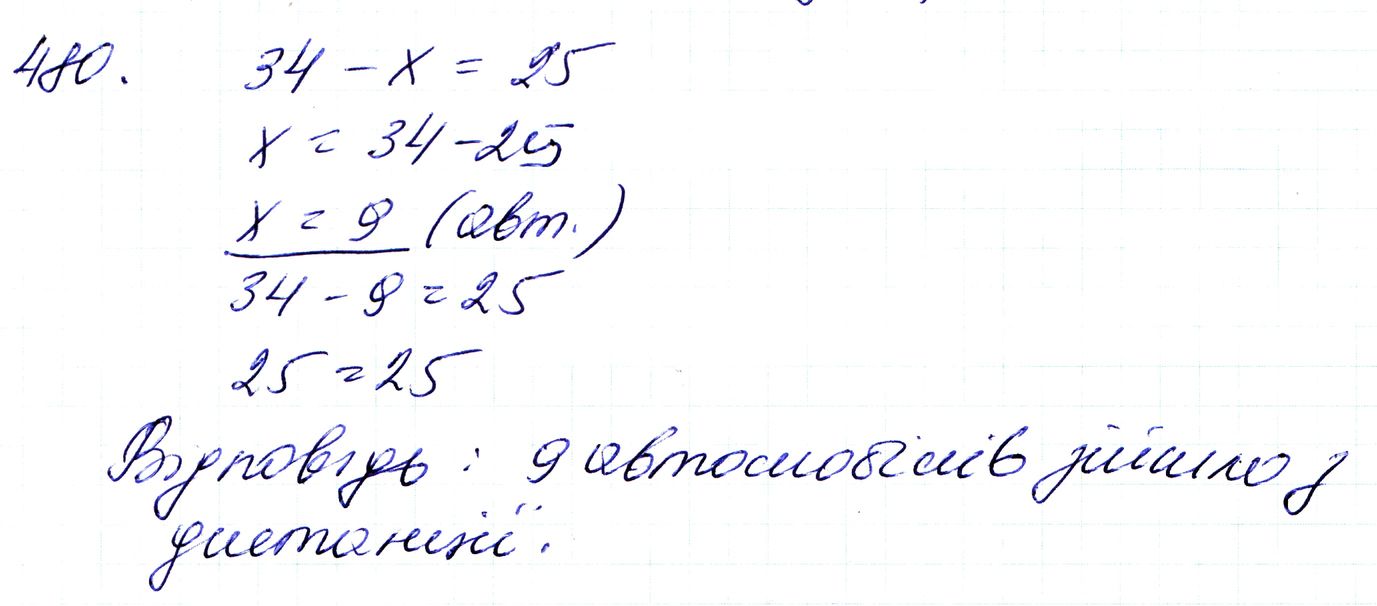 480. 34 - x = 25
x = 34 - 25
x = 9 (авт.)
34 - 9 = 25
25 = 25
Відповідь: 9 автомобілів зійшло з
дистанції.